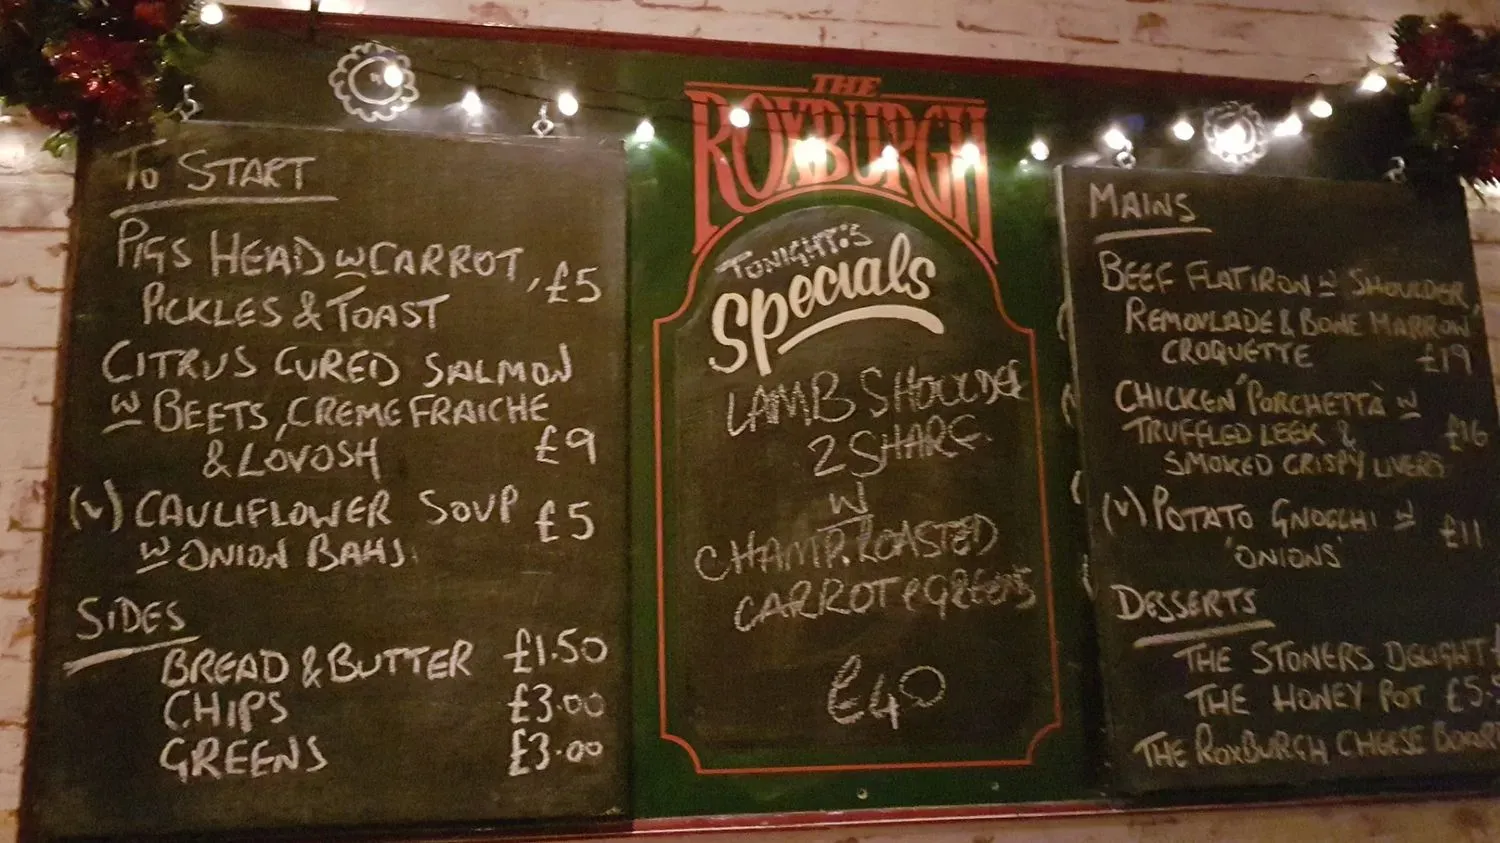 To START
PIGS HEAD w CARROT
PICKLES & TOAST , £5
CITRUS CURED SALMON
w BEETS, CREME FRAICHE
& LOVOSH £9
(v) CAULIFLOWER SOUP £5
w ONION BAHJ.
SIDES
BREAD & BUTTER £1.50
CHIPS £3.00
GREENS £3.00
THE
ROXBURGH
TONIGHT'S
Specials
LAMB SHOULDE
2 SHARE
w
CHAMP, ROASTED
CARROT & GREENS
£40
MAINS
BEEF FLATIRON w SHOULDER,
REMOULADE & BONE MARROW
CROQUETTE £19
CHICKEN "PORCHETTA" w
TRUFFLED LEEK & £16
SMOKED CRISPY LIVERS
(v) POTATO GNOCCHI w £11
'ONIONS'
DESSERTS
THE STONERS DELIGHT
THE HONEY POT £5.5
THE ROXBURGH CHEESE BOAR